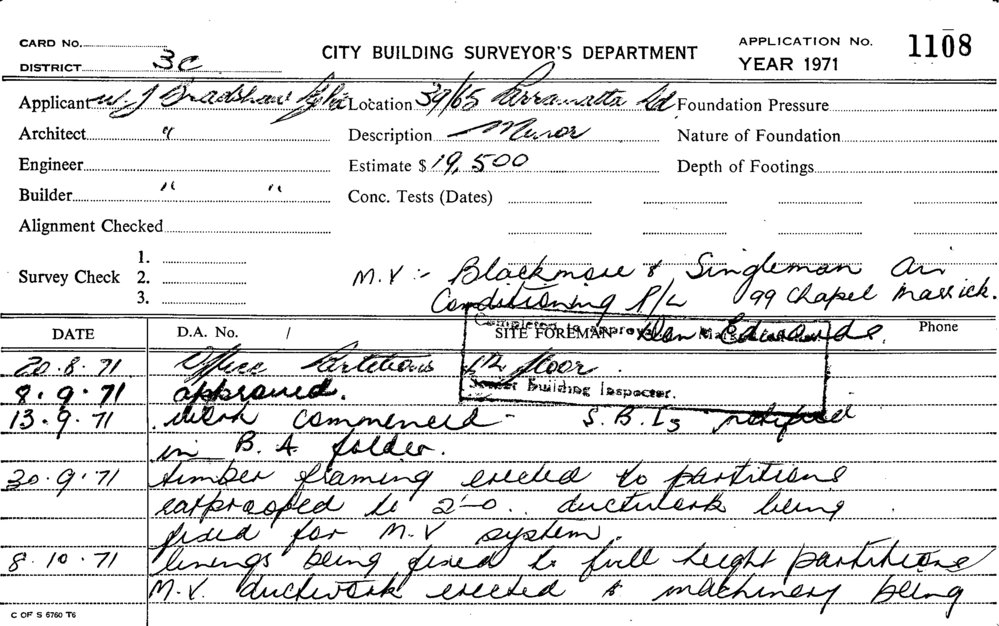 CARD No. CITY BUILDING SURVEYOR'S DEPARTMENT APPLICATION No. 1108
DISTRICT 3C YEAR 1971
Applicant W. J Bradshaw P/L Location 39/65 Parramatta Rd Foundation Pressure
Architect " Description Minor Nature of Foundation
Engineer Estimate $ 19,500 Depth of Footings
Builder " " Conc. Tests (Dates)
Alignment Checked
Survey Check 1.
2. M.V :- Blackmore & Singleman Air
3. Conditioning P/L 99 Chapel Marrick.
Completed as Approved
DATE D.A. No. / SITE FOREMAN Edwards. Phone
20.8.71 Office Partitions 4th floor.
Senior Building Inspector.
8.9.71 approved.
13.9.71 work commenced - S.B.Is notified
in B.A. folder.
30.9.71 timber framing erected to partitions
ratproofed to 2'-0.. ductwork being
fixed for M.V system.
8.10.71 linings being fixed to full height partitions
M.V. ductwork erected & machinery being
C OF S 6760 T6